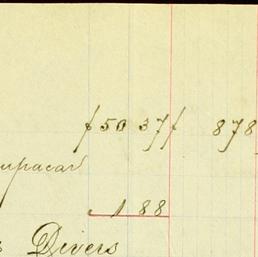 f 50 37 f 878
upacar
1 88
Divers